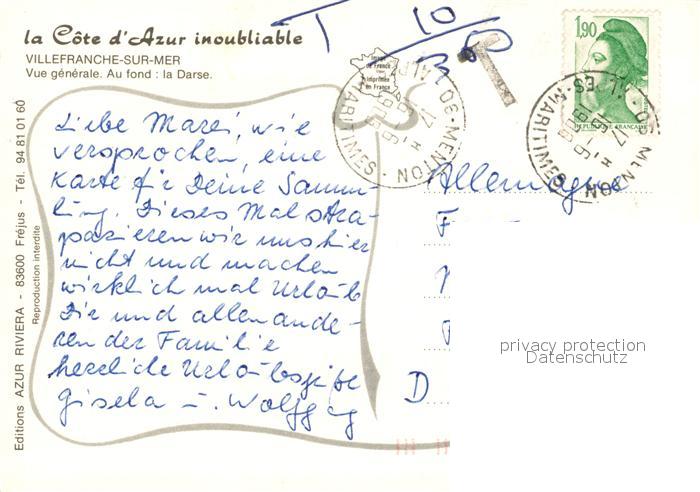 la Côte d'Azur inoubliable
VILLEFRANCHE-SUR-MER
Vue générale. Au fond : la Darse.
T 10
Image de France
imprimée en France
T
1,90
REPUBLIQUE FRANÇAISE
06-MENTON
ALPES-MARITIMES
06 MENTON
ALPES-MARITIMES
Liebe Marei, wie
versprochen, eine
Karte für Deine Samm-
ling. Dieses Mal stra-
pazieren wir uns hier
nicht und machen
wirklich mal Urlaub
Dir und allen ande-
ren der Familie
herzliche Urlaubsgrüße
Gisela u. Wolfgang
Allemagne
F
D
privacy protection
Datenschutz
Editions AZUR RIVIERA - 83600 Fréjus - Tél. 94 81 01 60
Reproduction interdite